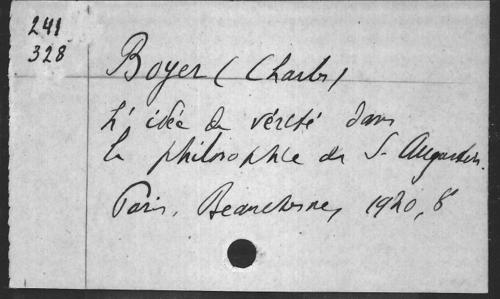 241
328
Boyer (Charles)
L'idée de vérité dans
la philosophie de S. Augustin.
Paris, Beauchesne, 1920, 8°